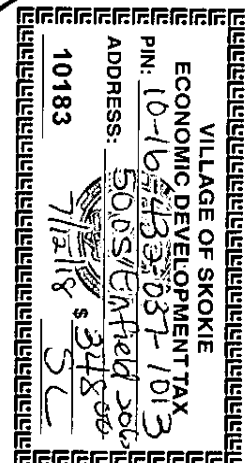 VILLAGE OF SKOKIE
ECONOMIC DEVELOPMENT TAX
PIN: 10-16-433-037-1013
ADDRESS: 5005 Enfield
7/12/18 $ 348.00
10183 SC